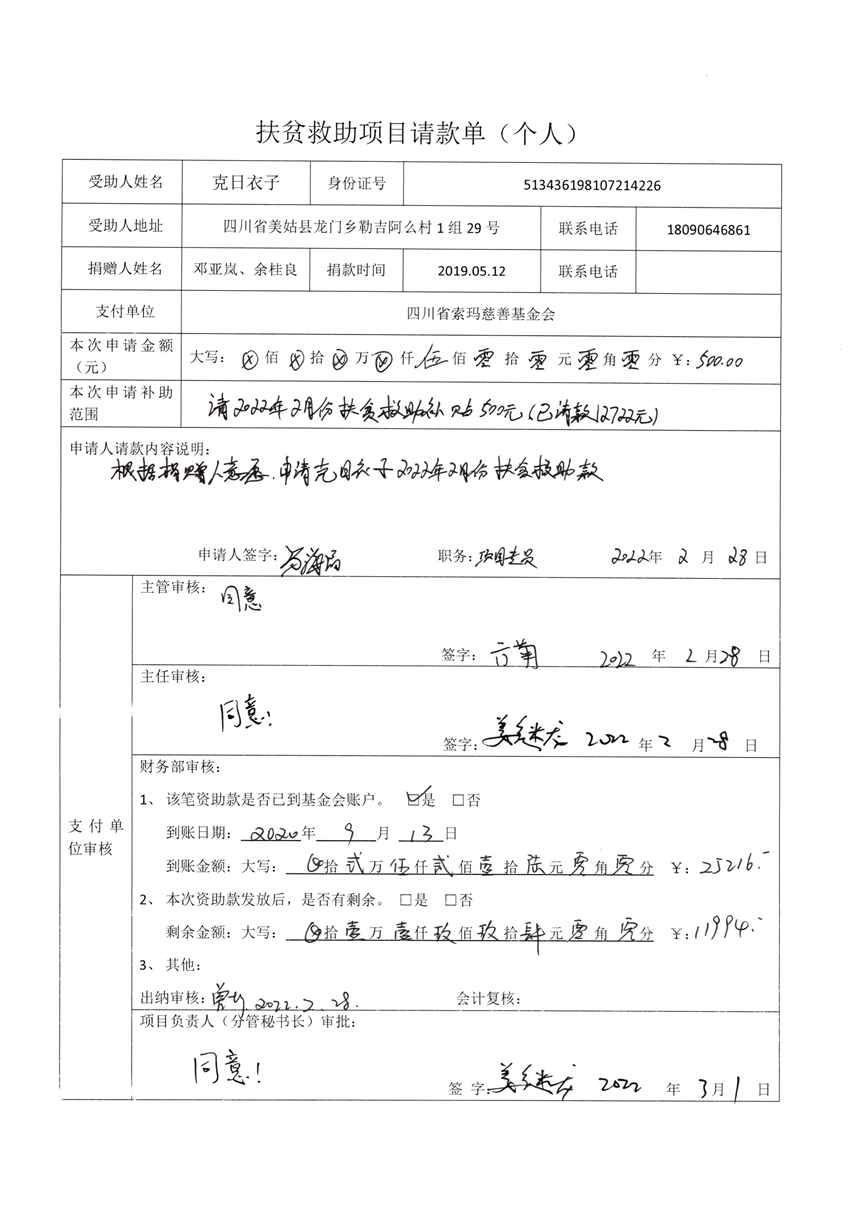 扶贫救助项目请款单（个人）
受助人姓名 克日衣子 身份证号 513436198107214226
受助人地址 四川省美姑县龙门乡勒吉阿么村1组29号 联系电话 18090646861
捐赠人姓名 邓亚岚、余桂良 捐款时间 2019.05.12 联系电话
支付单位 四川省索玛慈善基金会
本次申请金额（元） 大写：ⓧ佰ⓧ拾ⓧ万ⓧ仟伍佰零拾零元零角零分 ¥：500.00
本次申请补助范围 请2022年2月份扶贫救助补贴500元（已请款12722元）
申请人请款内容说明：
根据捐赠人意愿，申请克日衣子2022年2月份扶贫救助款
申请人签字： 职务：项目专员 2022年2月28日
主管审核：
同意
签字： 2022年2月28日
主任审核：
同意！
签字：姜继龙 2022年2月28日
支付单位审核
财务部审核：
1、该笔资助款是否已到基金会账户。 ☑是 □否
到账日期：2020年9月13日
到账金额：大写：ⓧ拾贰万伍仟贰佰壹拾陆元零角零分 ¥：25216.-
2、本次资助款发放后，是否有剩余。 □是 □否
剩余金额：大写：ⓧ拾壹万壹仟玖佰玖拾肆元零角零分 ¥：11994.-
3、其他：
出纳审核： 2022.2.28. 会计复核：
项目负责人（分管秘书长）审批：
同意！
签字：姜继龙 2022年3月1日